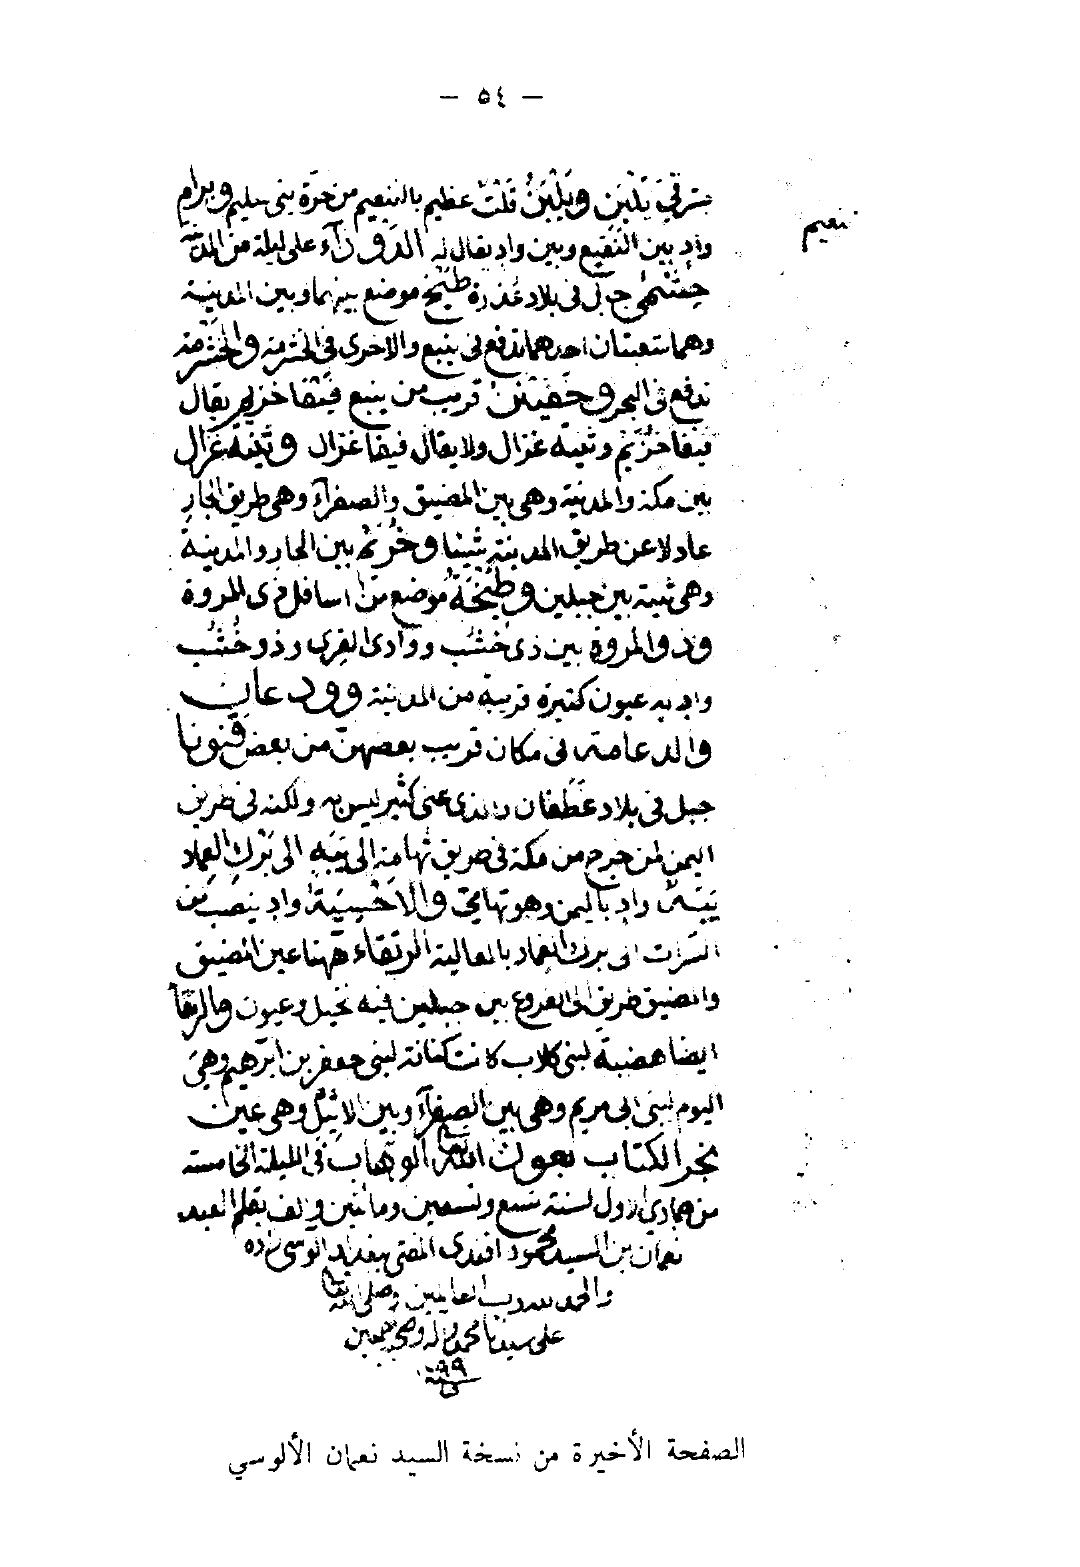 — ٥٤ —
شرقي يَلْبَن ويَلْبَنُ قَلْتٌ عظيم بالنقيع من حَرّة بني سليم وبرام
نقيع
وادٍ بين النقيع وبين وادٍ يقال له على ليلة من المدينة
جبل في بلاد عُذرة طَبَخ موضع بينهما وبين المدينة
وهما شعبتان احدهما تدفع في ينبع والاخرى في الخشرمة والخشرمة
تدفع في البحر وحَفَيتن قريب من ينبع فيفا خريم يقال
فيفا خُرَيم وثنية غزال ولا يقال فيفا غزال وثنية غزال
بين مكة والمدينة وهي بين المضيق والصفرآء وهي طريق الجار
عادلا عن طريق المدينة شيئا وخُرَيم بين الجار والمدينة
وهي ثنية بين جبلين وطَيْخَةُ موضع من اسافل ذى المروة
وذو المروة بين ذى خشب ووادى القرى وذو خُشُب
وادٍ به عيون كثيرة قريبة من المدينة وود عان
في مكان قريب بعضهن من بعض قنونا
جبل في بلاد غَطَفان والذى عنى كثير ليس به ولكنه في طريق
اليمن لمن خرج من مكة في طريق تهامة الى يَبَةٍ الى بَرْك الغِماد
يَبَة وادٍ باليمن وهو تهامي والاَحْسِيَة وادٍ ينصب من
السراة الى برك الغماد بالعالية الرنقاء ههنا عين المضيق
والمضيق طريق الى الفروع بين جبلين فيه نخيل وعيون والرنقا
ايضا هضبة لبني كلاب كانت كنانة لبني جعفر بن ابرهيم وهي
اليوم لبني ابى مريم وهي بين الصفرآء وبين الاثيل وهي عين
نجز الكتاب بعون الله تعالى الوهاب في الليلة الخامسة
من جمادى الاول لسنة تسع وتسعين ومائتين والف بقلم العبد
نعمان بن السيد محمود افندى المفتى ببغداد آلوسى زاده
والحمد لله رب العالمين وصلى الله تعالى
على سيدنا محمد وآله وصحبه اجمعين
سنة ٩٩
الصفحة الأخيرة من نسخة السيد نعمان الألوسي